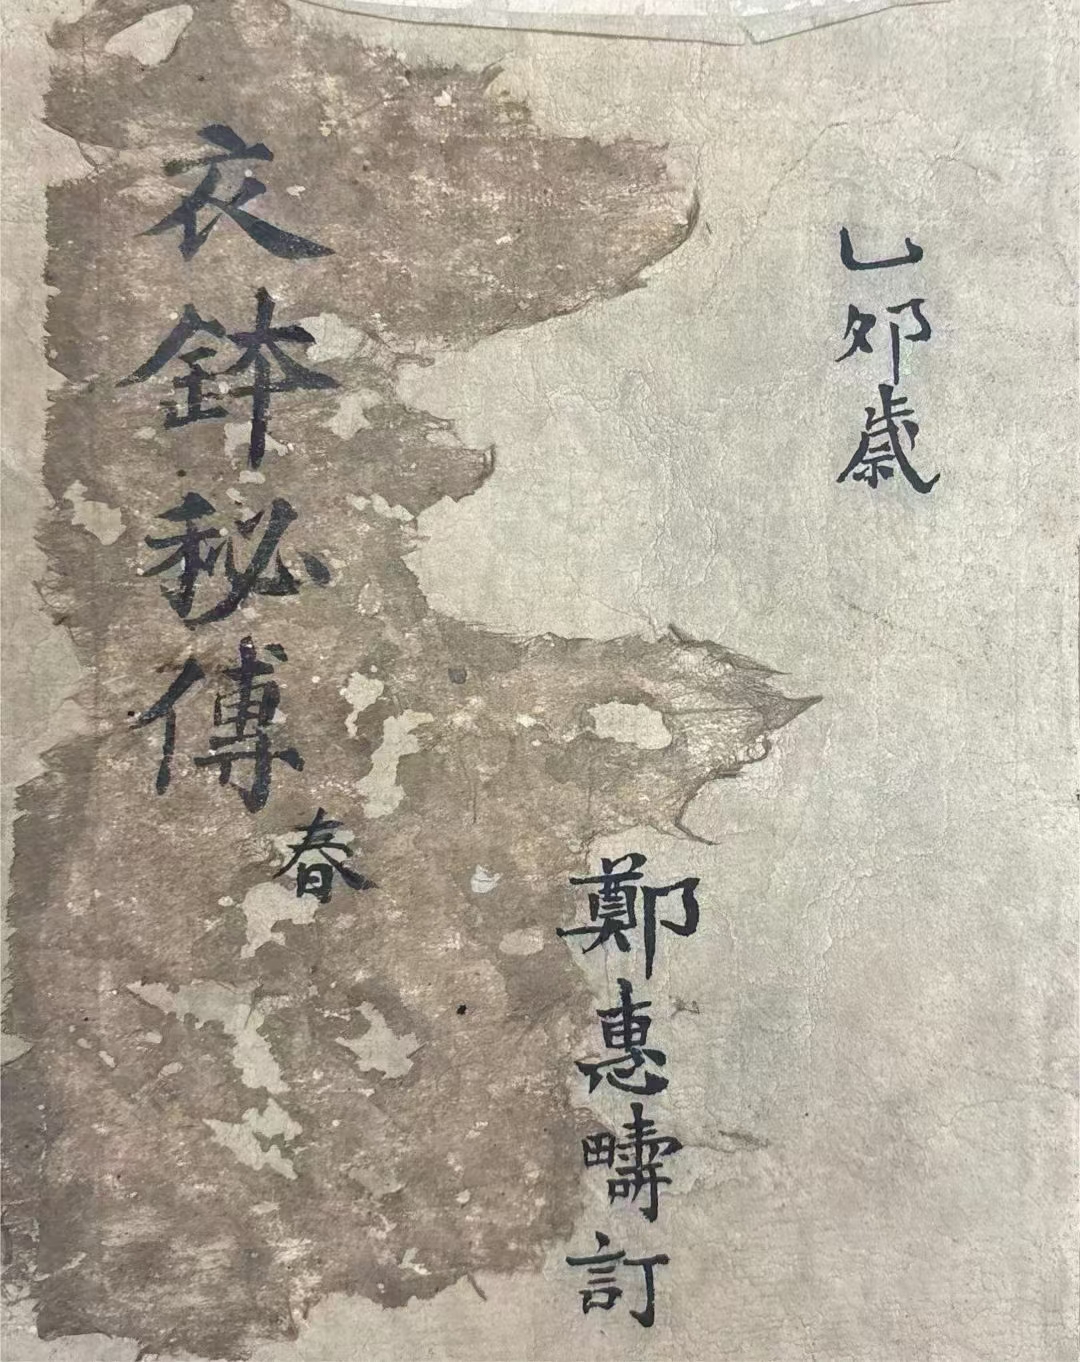 乙卯歲
鄭惠疇訂
衣鉢秘傳
春